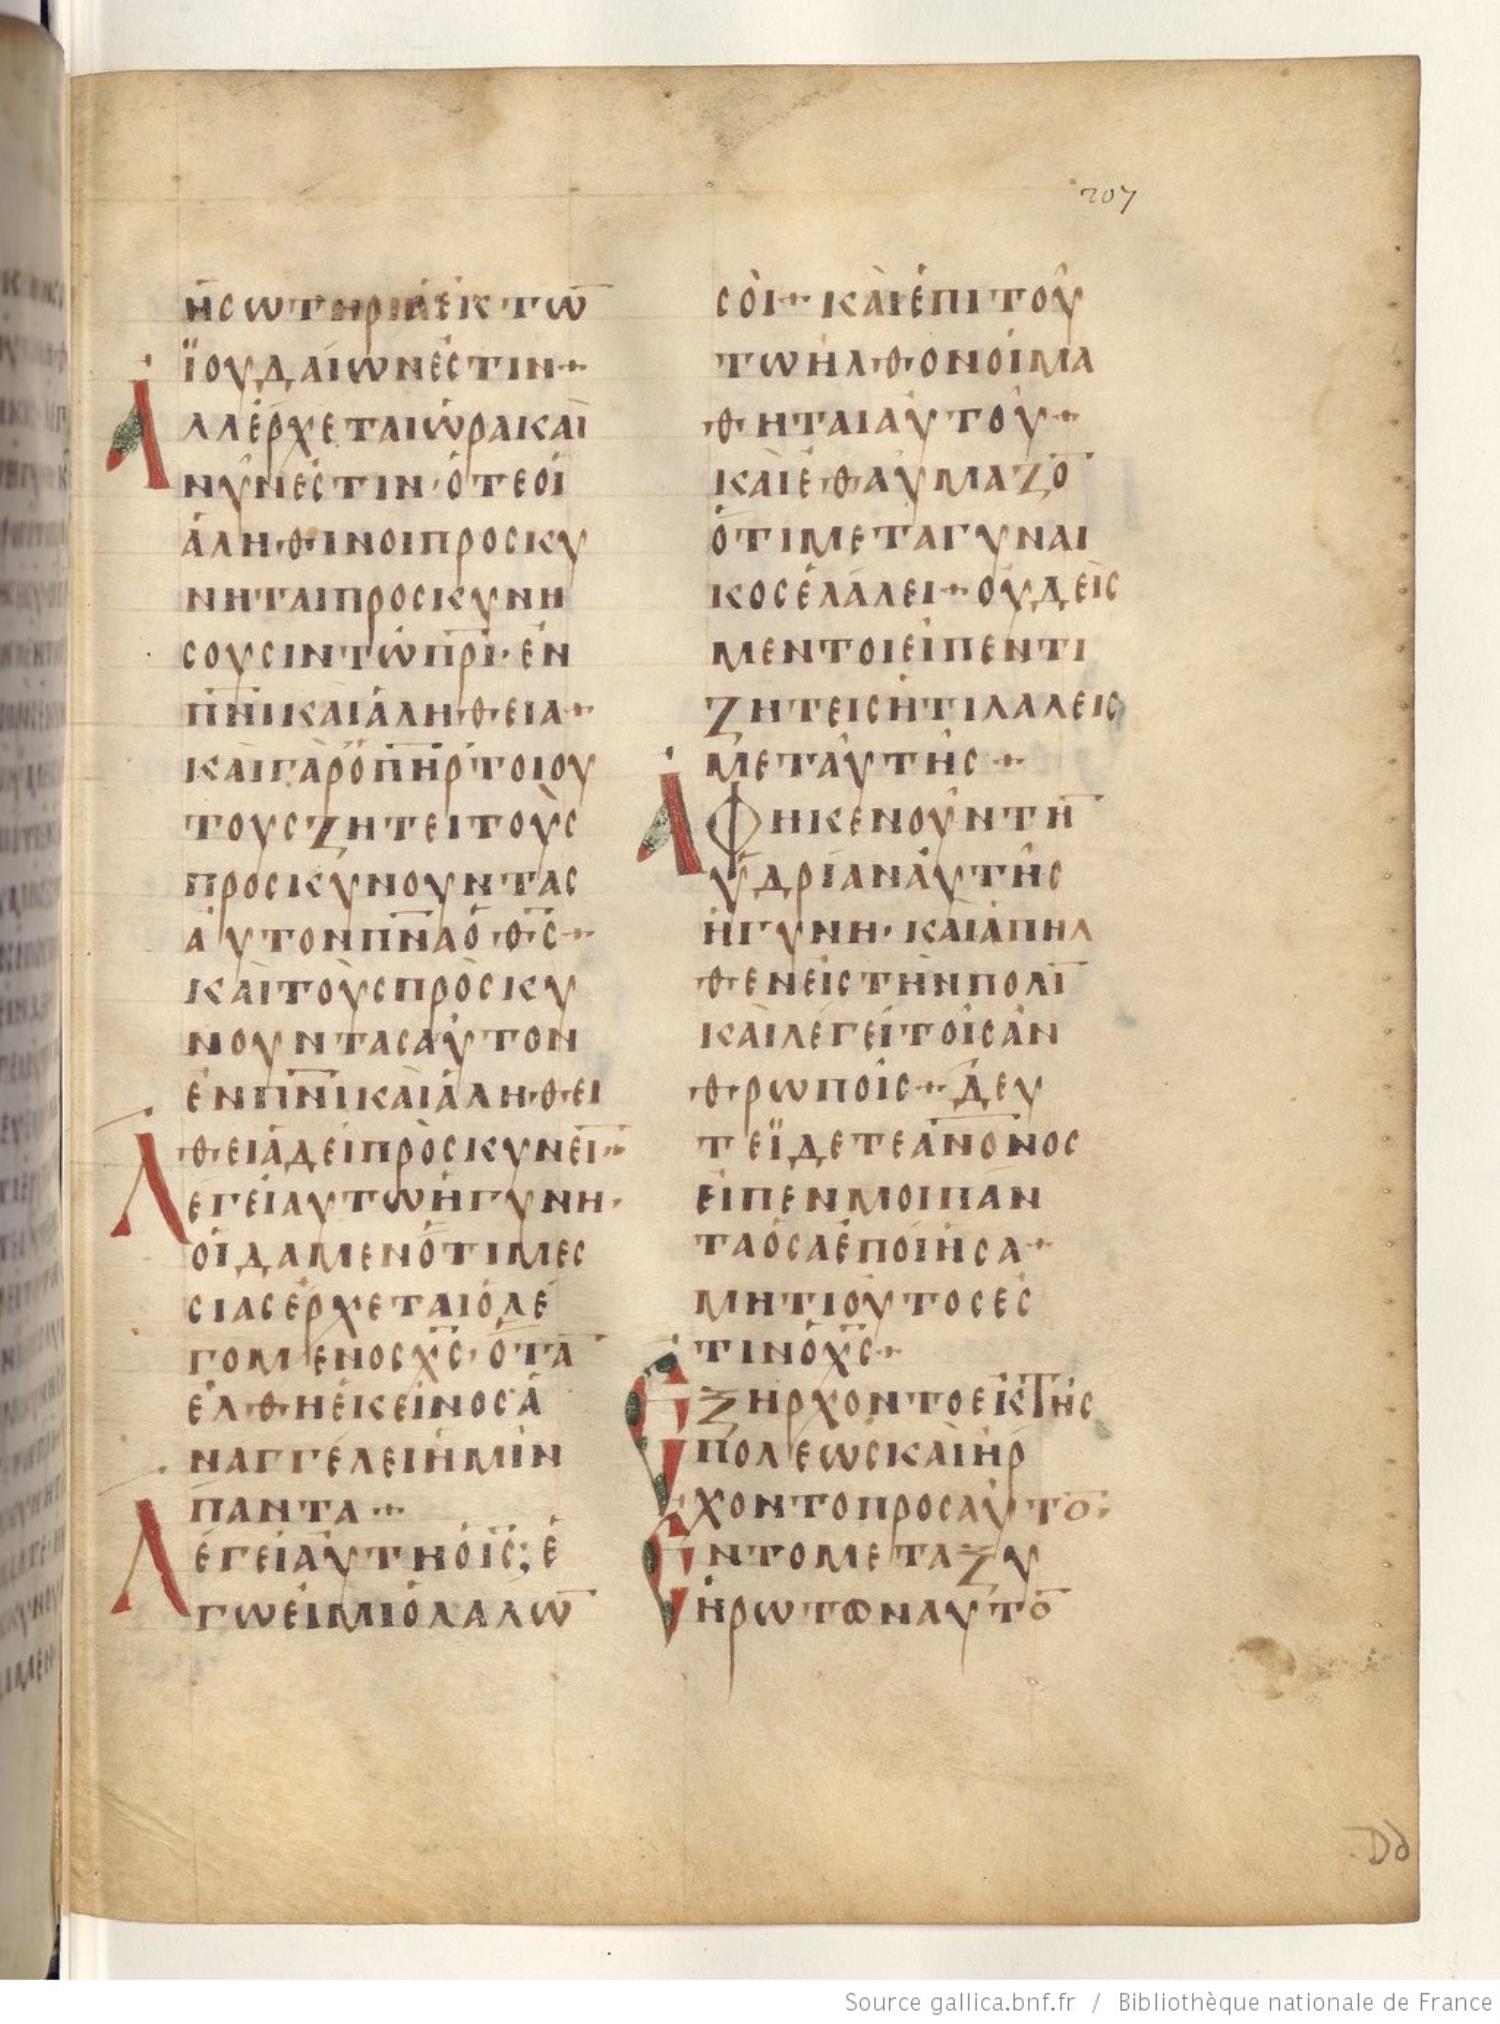 207
ἡ σωτηρία ἐκ τῶ̅
ϊουδαίων ἐστιν·
Αλλ ἔρχεται ὥρα καὶ
νῦν ἐστιν· ὅτε οἱ
ἀληθινοι προσκυ
νηται προσκυνη
σουσιν τῶ π̅ρ̅ι̅· ἐν
π̅ν̅ι̅ και ἀληθεια·
καὶ γὰρ ὁ π̅η̅ρ̅ τοιου
τους ζητει τοὺς
προσκυνουντας
αυτον π̅ν̅α̅ ὁ θ̅ς̅·
καὶ τοὺς πρὸσκυ
νουντας αὐτον
ἐν π̅ν̅ι̅ καὶ ἀληθει
θειἀ δεί πρὸσκυνεῖ̅·
Λεγεί αυτω ἡ γυνη·
οἶδαμεν ὅτι μες
σιας ἐρχεται ὁ λε
γομενος χ̅ς̅· ὅτα̅
ἐλθη ἐκεινος ἀ
ναγγελει ἡμῖν
παντα·
Λεγεί αὐτη ὁ ι̅ς̅; ἐ
γω εἰμι ὁ λαλῶ̅
σὸι· καὶ ἐπι τοὺ
τω ἦλθον οἱ μα
θηται αὐτοῦ·
καὶ ἐθαύμαζο̅
ὅτι μετα γυναι
κος ἐλάλει· οὐδεὶς
μεντοι εἶπεν τι
ζητεις ἢ τι λαλεις
μετ αὐτῆς·
Αφηκεν οὖν τη̅
ὑδρίαν ἀυτῆς
ἡ γυνη· καὶ ἀπηλ
θεν εἰς τὴν πολι̅
καὶ λέγεί τοῖς ἀν
θρωποίς· δευ
τε ϊδετε α̅ν̅ο̅ν̅ ος
εἶπεν μοι παν
τα ὅσα ἐποίησα·
μητι οὗτος ἐς
τιν ὁ χ̅ς̅·
Εξηρχοντο εκ τῆς
πολεως και ἠρ
χοντο προς αὐτο̅·
Εν το μεταξυ
ἠρωτων αυτο̅
Dd
Source gallica.bnf.fr / Bibliothèque nationale de France